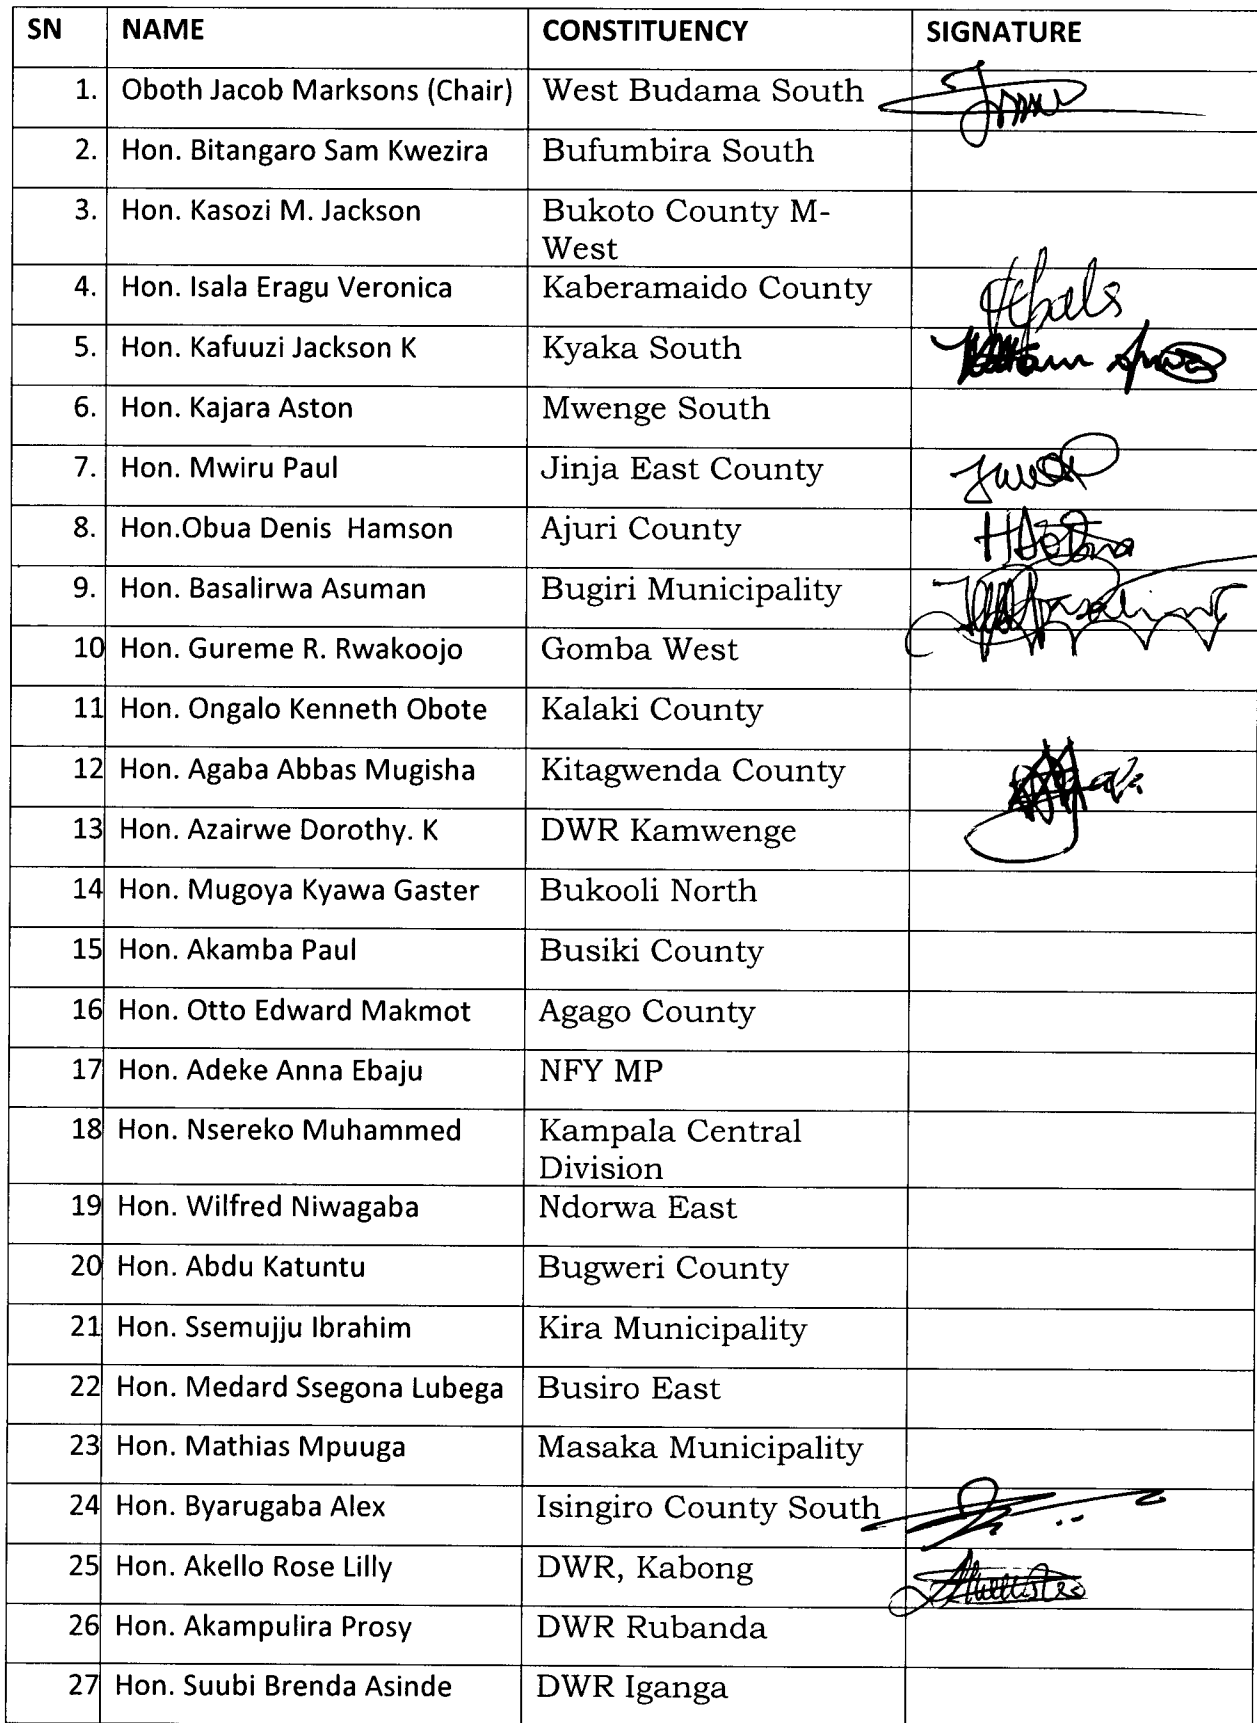 SN NAME CONSTITUENCY SIGNATURE
1. Oboth Jacob Marksons (Chair) West Budama South
2. Hon. Bitangaro Sam Kwezira Bufumbira South
3. Hon. Kasozi M. Jackson Bukoto County M-
West
4. Hon. Isala Eragu Veronica Kaberamaido County
5. Hon. Kafuuzi Jackson K Kyaka South
6. Hon. Kajara Aston Mwenge South
7. Hon. Mwiru Paul Jinja East County
8. Hon.Obua Denis Hamson Ajuri County
9. Hon. Basalirwa Asuman Bugiri Municipality
10 Hon. Gureme R. Rwakoojo Gomba West
11 Hon. Ongalo Kenneth Obote Kalaki County
12 Hon. Agaba Abbas Mugisha Kitagwenda County
13 Hon. Azairwe Dorothy. K DWR Kamwenge
14 Hon. Mugoya Kyawa Gaster Bukooli North
15 Hon. Akamba Paul Busiki County
16 Hon. Otto Edward Makmot Agago County
17 Hon. Adeke Anna Ebaju NFY MP
18 Hon. Nsereko Muhammed Kampala Central
Division
19 Hon. Wilfred Niwagaba Ndorwa East
20 Hon. Abdu Katuntu Bugweri County
21 Hon. Ssemujju Ibrahim Kira Municipality
22 Hon. Medard Ssegona Lubega Busiro East
23 Hon. Mathias Mpuuga Masaka Municipality
24 Hon. Byarugaba Alex Isingiro County South
25 Hon. Akello Rose Lilly DWR, Kabong
26 Hon. Akampulira Prosy DWR Rubanda
27 Hon. Suubi Brenda Asinde DWR Iganga